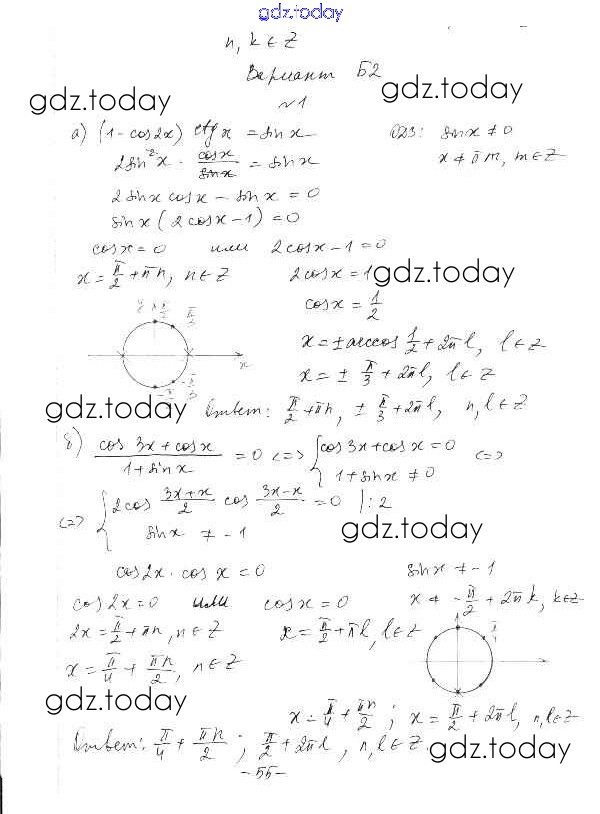 gdz.today
n, k ∈ Z
Вариант Б2
gdz.today gdz.today
№1
а) (1 - cos2x) ctg x = sin x ОДЗ: sin x ≠ 0
2sin²x · cosx/sinx = sin x x ≠ πm, m ∈ Z
2 sin x cos x - sin x = 0
sin x (2 cos x - 1) = 0
cos x = 0 или 2cos x - 1 = 0
x = π/2 + πn, n ∈ Z 2cos x = 1 gdz.today
cos x = 1/2
x = ± arccos 1/2 + 2πl, l ∈ Z
x = ± π/3 + 2πl, l ∈ Z
gdz.today Ответ: π/2 + πn, ± π/3 + 2πl, n, l ∈ Z
б) (cos 3x + cos x)/(1 + sin x) = 0 <=> { cos 3x + cos x = 0 <=>
1 + sin x ≠ 0
<=> { 2cos (3x+x)/2 cos (3x-x)/2 = 0 |:2
sin x ≠ -1 gdz.today
cos 2x · cos x = 0 sin x ≠ -1
cos 2x = 0 или cos x = 0 x ≠ -π/2 + 2πk, k ∈ Z
2x = π/2 + πn, n ∈ Z x = π/2 + πl, l ∈ Z π/4
x = π/4 + πn/2, n ∈ Z
gdz.today x = π/4 + πn/2; x = π/2 + 2πl, n, l ∈ Z
Ответ: π/4 + πn/2; π/2 + 2πl, n, l ∈ Z. gdz.today
- 55 -